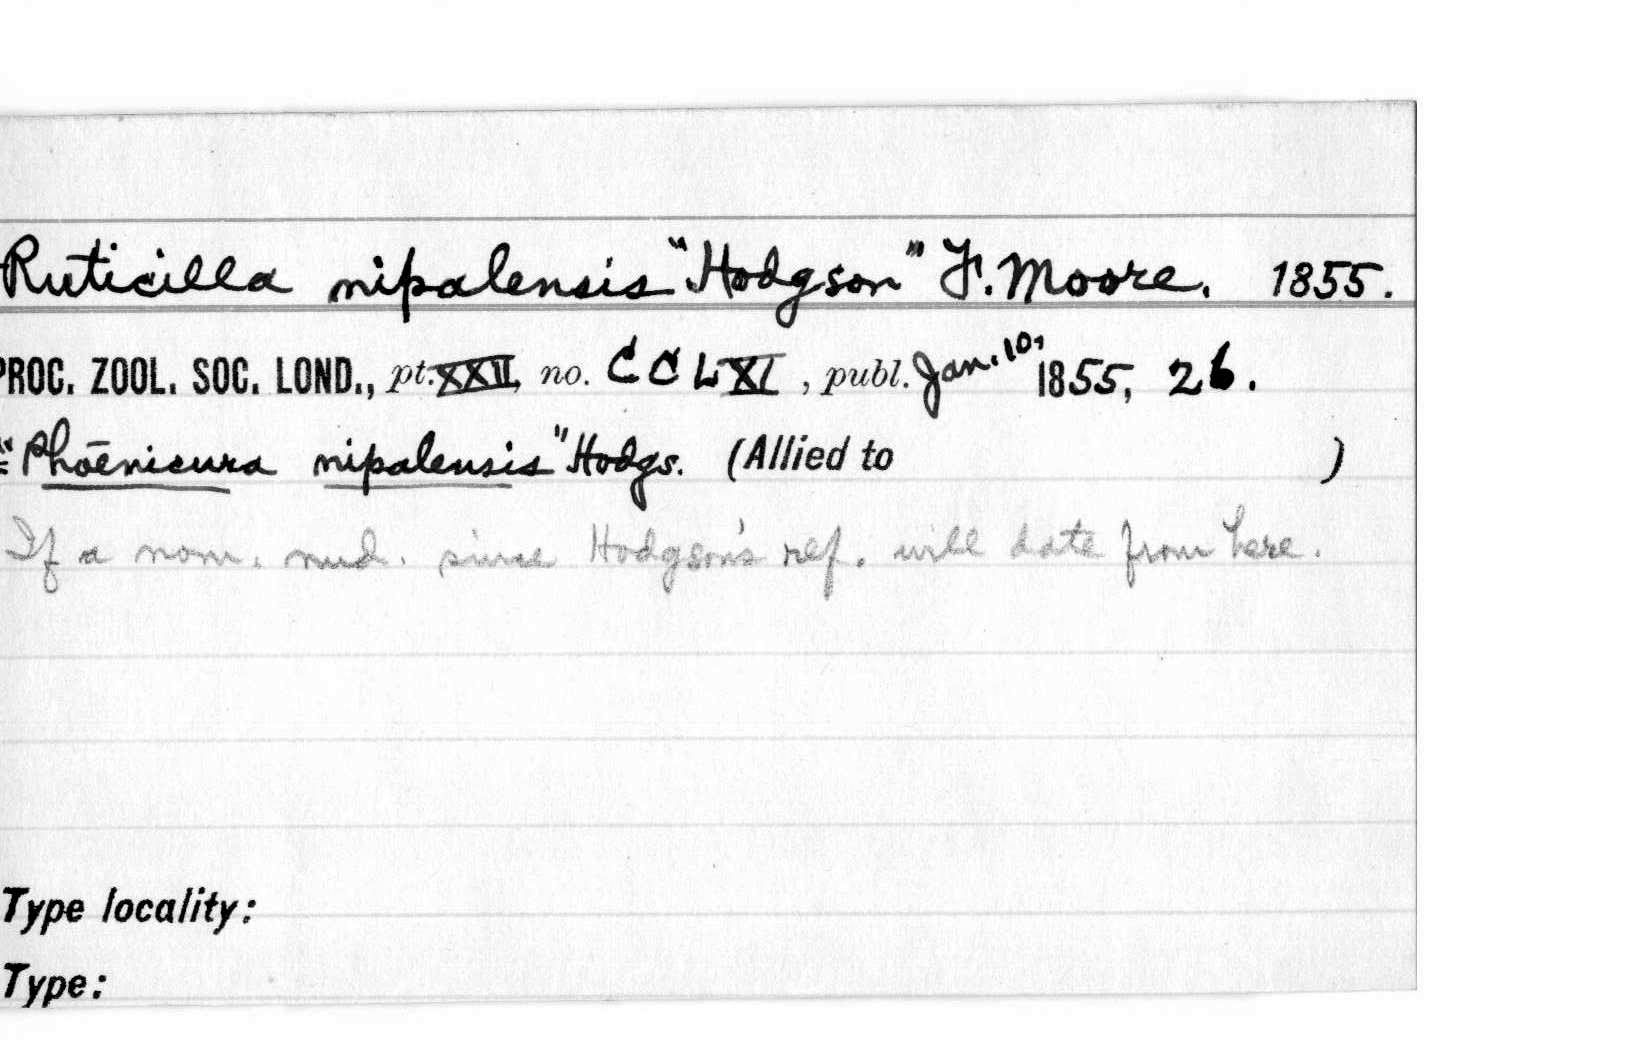 Ruticilla nipalensis "Hodgson" F. Moore. 1855.
PROC. ZOOL. SOC. LOND., pt. XXII, no. CCLXI, publ. Jan. 10, 1855, 26.
=“Phoēnicura nipalensis” Hodgs. (Allied to )
If a nom. nud. since Hodgson's ref. will date from here.
Type locality:
Type: